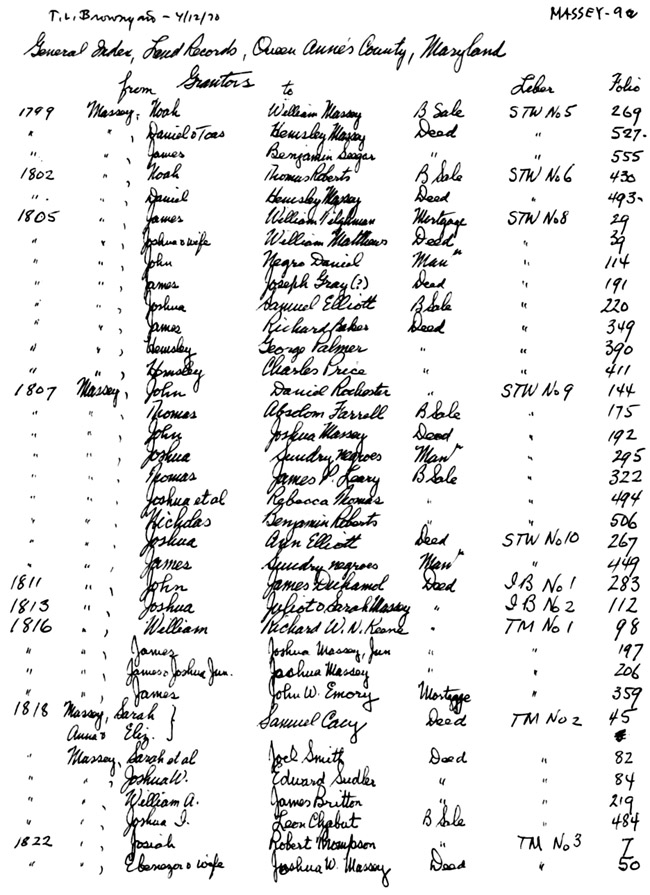 T.L. Brownyard - 4/12/70 MASSEY-9a
General Index, Land Records, Queen Anne's County, Maryland
from Grantors to Liber Folio
1799 Massey, Noah William Massey B Sale STW No 5 269
" " , Daniel & Hemsley Massey Deed " 527
" " , James Benjamin Seegar " " 555
1802 " , Noah Thomas Roberts B Sale STW No 6 430
" " , Daniel Hemsley Massey Deed " 493
1805 " , James William Tilghman Mortgage STW No 8 29
" " , Joshua & wife William Matthews Deed " 39
" " , John Negro Daniel Man" " 114
" " , James Joseph Gray (?) Deed " 191
" " , Joshua Samuel Elliott B Sale " 220
" " , James Richard Baker Deed " 349
" " , Hemsley George Palmer " " 390
" " , Hemsley Charles Price " " 411
1807 Massey, John Daniel Rochester " STW No 9 144
" " , Thomas Absolom Farrell B Sale " 175
" " , John Joshua Massey Deed " 192
" " , Joshua Sundry negroes Man" " 295
" " , Thomas James P. Leary B Sale " 322
" " , Joshua et al Rebecca Thomas " " 494
" " , Nicholas Benjamin Roberts " " 506
" " , Joshua Ann Elliott Deed STW No 10 267
" " , James Sundry negroes Man" " 449
1811 " , John James Duhamel Deed IB No 1 283
1813 " , Joshua & Sarah Massey " IB No 2 112
1816 " , William Richard W. N. Keene " TM No 1 98
" " , James Joshua Massey, Jun " " 197
" " , James & Joshua Jun. Joshua Massey " " 206
" " , James John W. Emory Mortgage " 359
1818 Massey, Sarah } Samuel Cacy Deed TM No 2 45
Anna & Eliz.
" Massey, Sarah et al Joel Smith Deed " 82
" " , Joshua W. Edward Sudler " " 84
" " , William A. James Britton " " 219
" " , Joshua I. Leon Chabut B Sale " 484
1822 " , Josiah Robert Thompson " TM No 3 7
" " , Ebenezer & wife Joshua W. Massey Deed " 50